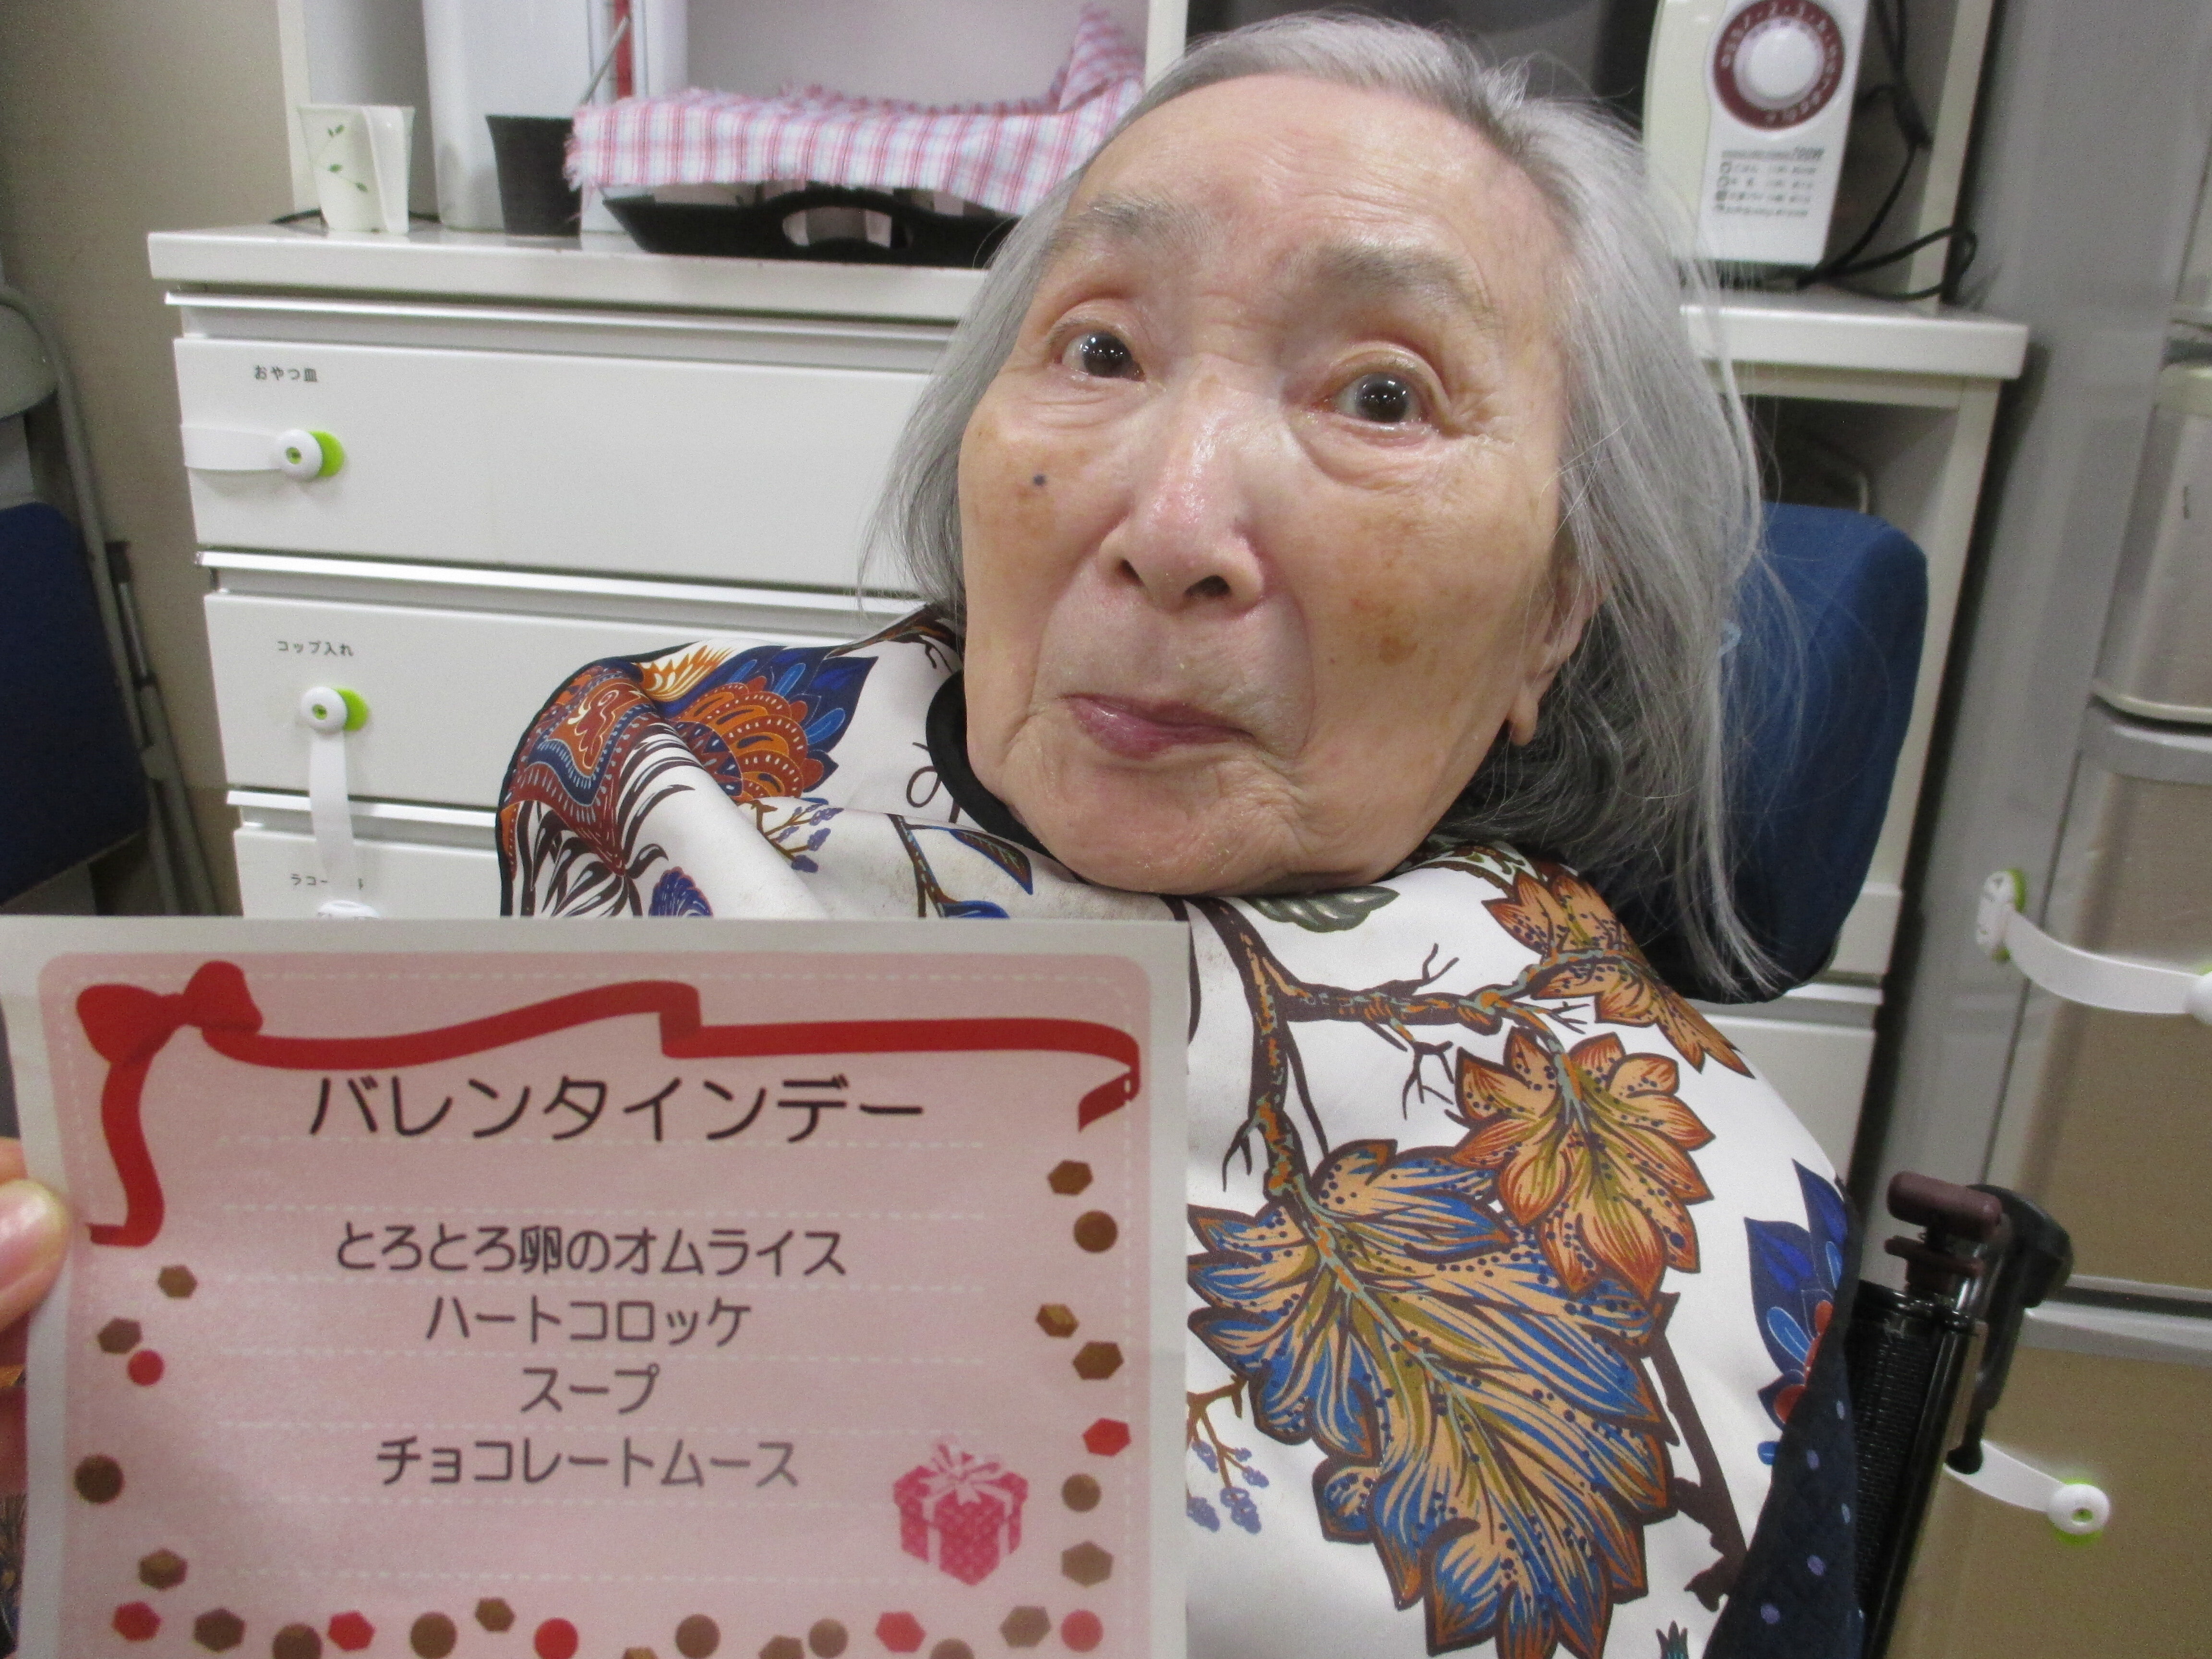 おやつ皿
コップ入れ
バレンタインデー
とろとろ卵のオムライス
ハートコロッケ
スープ
チョコレートムース